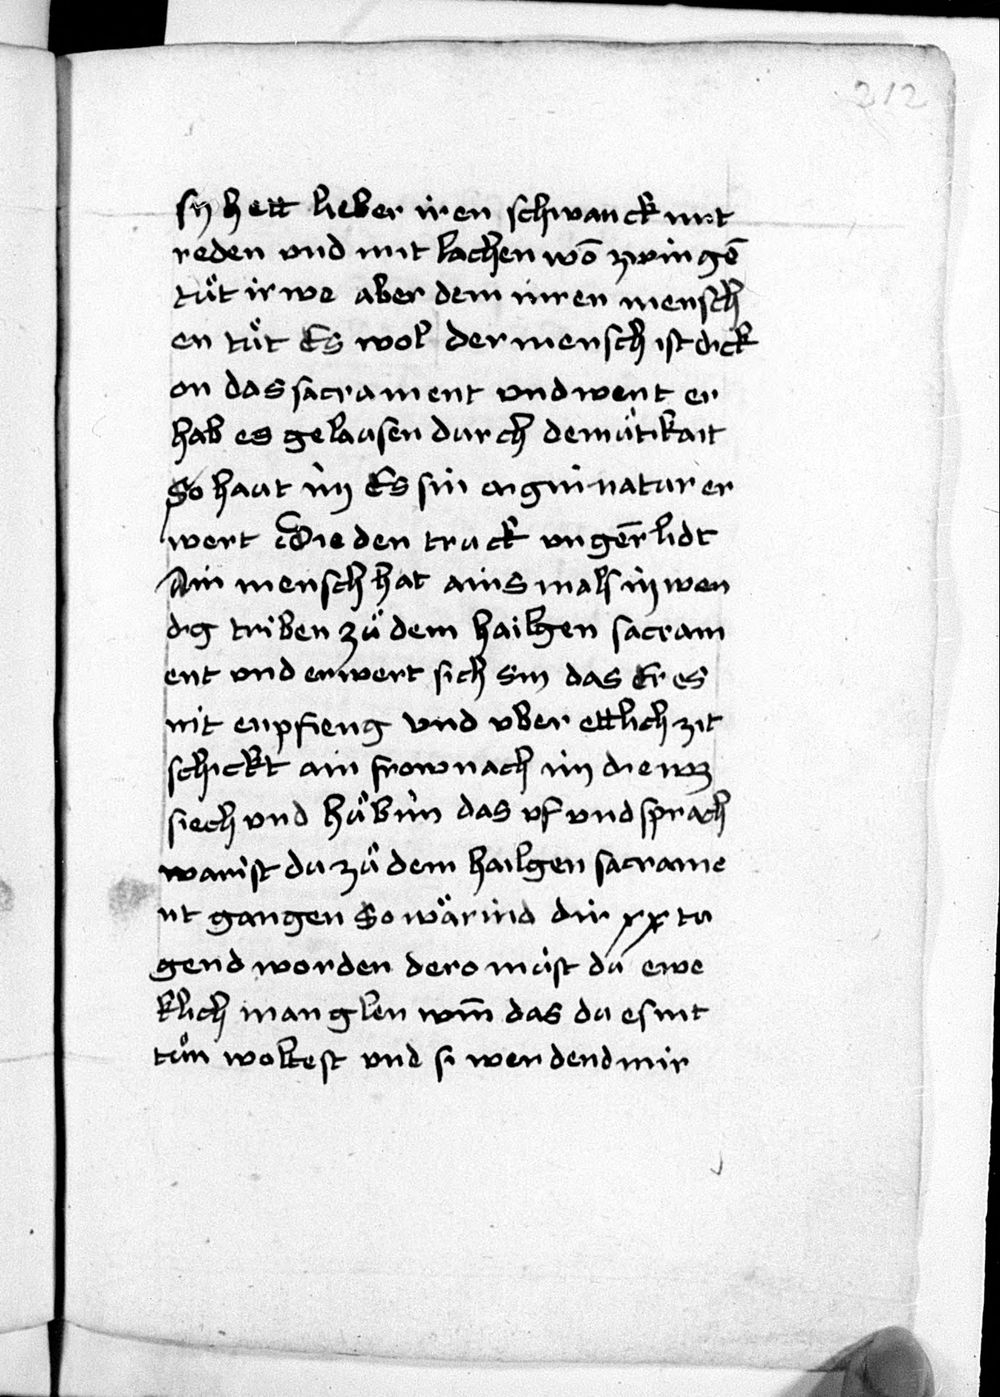 212
sÿ hett lieber iren schwanck mit
reden vnd mit lachen wō zwingē
tuͦt ir we aber dem inren mensch
en tuͦt Es wol der mensch ist dick
on das sacrament vnd went er
hab es gelausen durch demuͤtikait
So haut im Es sin aigin natur er
wert Die den truck vngēr lidt
Ain mensch hat ains mals inwen
dig triben zuͦ dem hailgen sacram
ent vnd erwert sich sin das Er es
nit enpfieng vnd vber ettlich zit
schickt ain frow nach im die wz
siech vnd huͦb im das vf vnd sprach
warist du zuͦ dem hailgen sacrame
nt gangen So wärind dir xx tu
gend worden dero muͦst du ewe
klich manglen wm̄ das du es nit
tuͦn woltest vnd si werdend mir